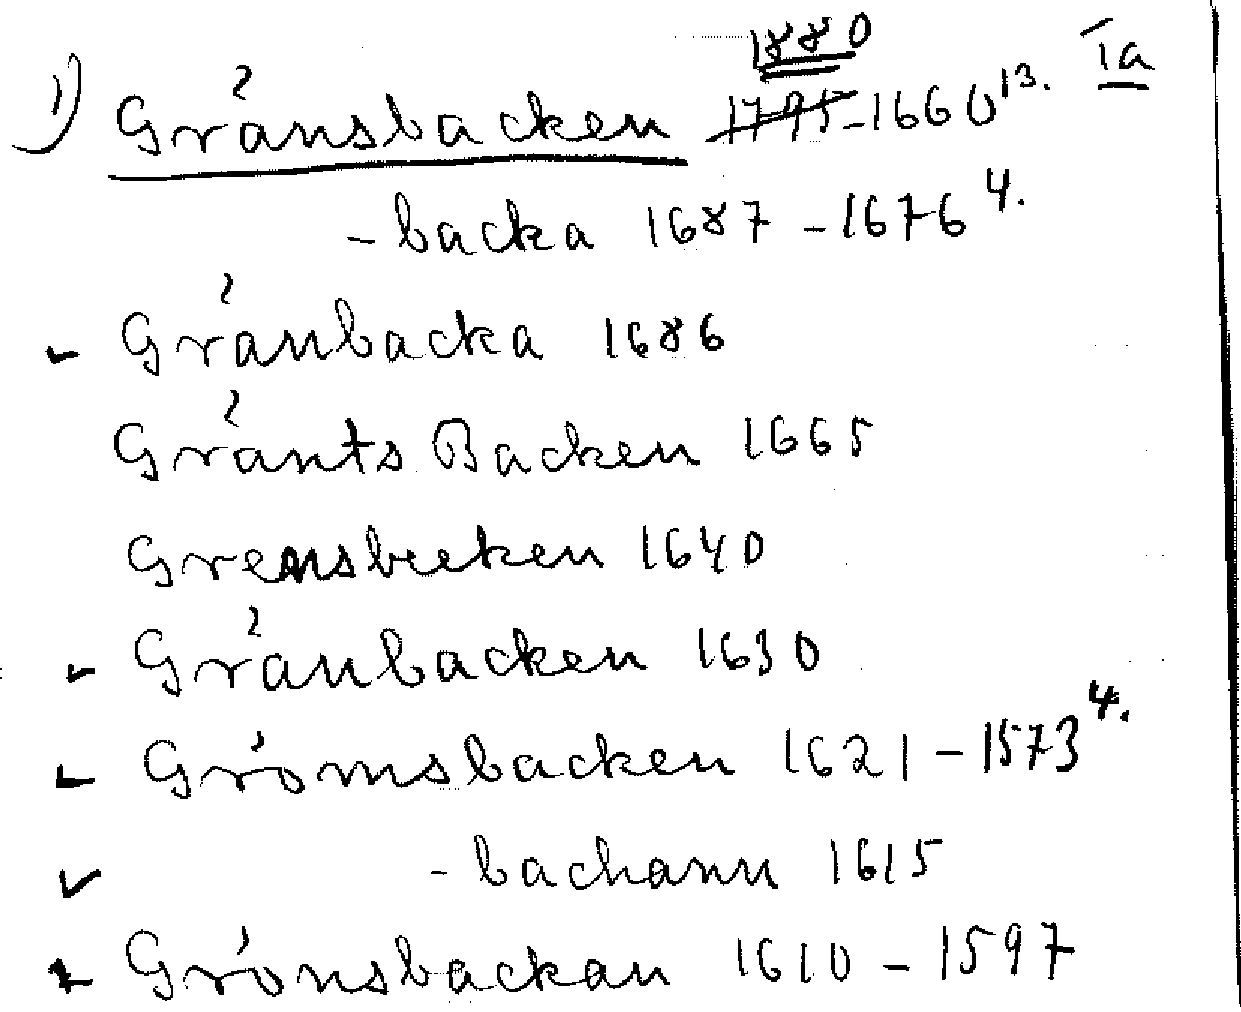 1880 Ia
1) Gränsbacken 1795-1660 13.
-backa 1687-1676 4.
Gränbacka 1686
Gränts Backen 1665
Grensbecken 1640
Gränbacken 1630
Grömsbacken 1621-1573 4.
-bachann 1615
Grönsbackan 1610-1597